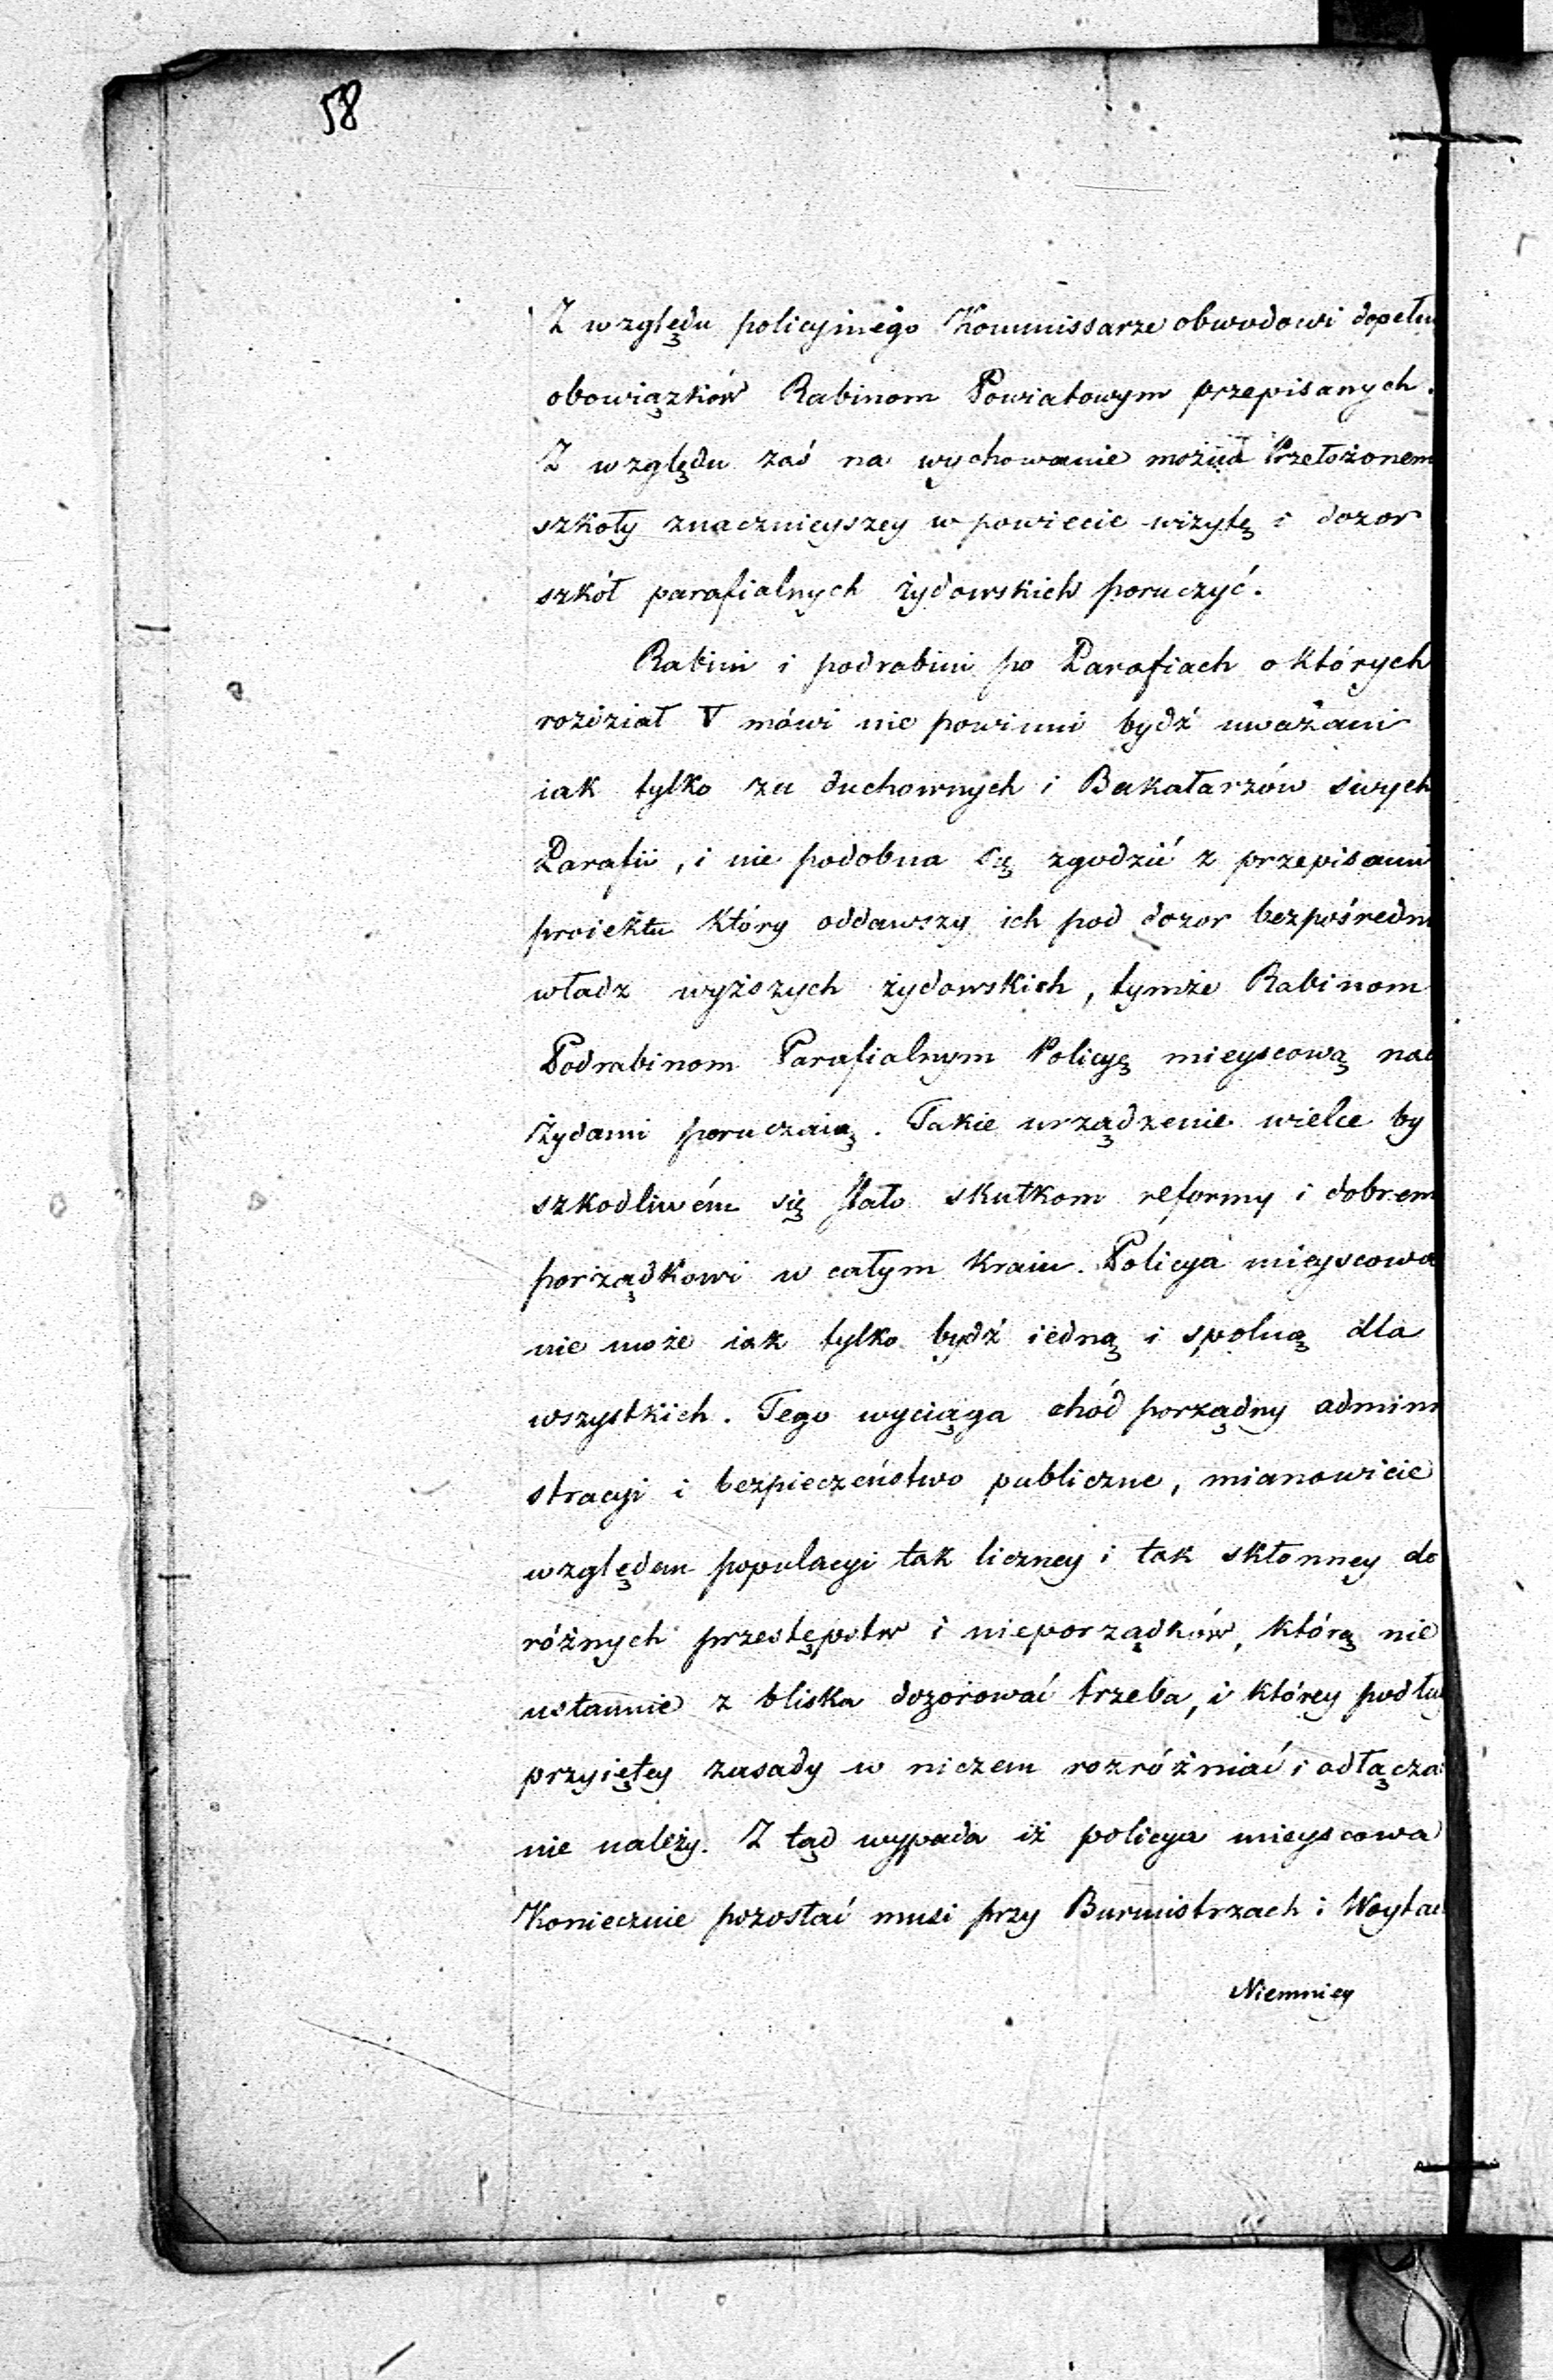 58
Z względu policyinego Kommissarze obwodowi dopełn
obowiązków Rabinom Powiatowym przepisanych.
Z względu zaś na wychowanie można Przełożonem
szkoły znacznieyszey w powiecie wizytę i dozor
szkół parafialnych żydowskich poruczyć.
Rabini i podrabini po Parafiach o których
rozdział V mówi nie powinni bydź uważani
iak tylko za duchownych i Bakałarzów swych
Parafii, i nie podobna się zgodzić z przepisami
proiektu który oddawszy ich pod dozor bezpośredn
władz wyższych żydowskich, tymże Rabinom
Podrabinom Parafialnym Policyę mieyscową nad
Żydami poruczaią. Takie urządzenie wielce by
szkodliwém się stało skutkom reformy i dobrem
porządkowi w całym kraiu. Policya mieyscowa
nie może iak tylko bydź iedną i spolną dla
wszystkich. Tego wyciąga chód porządny admini
stracyi i bezpieczeństwo publiczne, mianowicie
względem populacyi tak liczney i tak skłonney do
różnych przestępstw i nieporządków, którą nie
ustannie z bliska dozorować trzeba, i którey podłu
przyiętey zasady w niczem rozróżniać i odłącza
nie należy. Z tąd wypada iż policya mieyscowa
Koniecznie pozostać musi przy Burmistrzach i Woytac
Niemniey